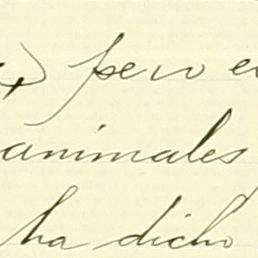 pero
animales
ha dicho